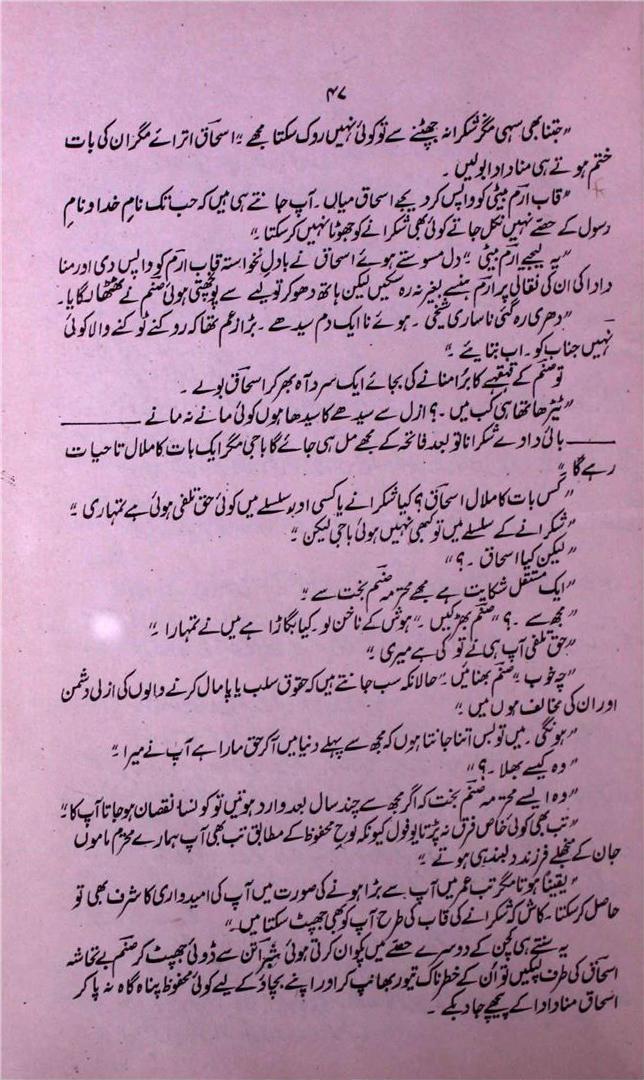 ۴۷
”جتنا بھی سہی مگر شکرانہ جھپٹنے سے تو کوئی نہیں روک سکتا مجھے“ اسحاق اترائے مگر ان کی بات
ختم ہوتے ہی منا دادا بولیں ۔
”قاب ارم بیٹی کو واپس کر دیجے اسحاق میاں ۔ آپ جانتے ہی ہیں کہ جب تک نامِ خدا و نامِ
رسول کے حصّے نہیں نکل جاتے کوئی بھی شکرانے کو جھوٹا نہیں کر سکتا ۔“
”یہ لیجیے ارم بیٹی“ دل مسوستے ہوئے اسحاق نے بادلِ نخواستہ قاب ارم کو واپس دی اور منا
دادا کی ان کی نقالی پر ارم ہنسے بغیر نہ رہ سکیں لیکن ہاتھ دھو کر تولیے سے پونچھتی ہوئی صنم نے ٹھٹھا لگایا ۔
”دھری رہ گئی نا ساری شیخی ۔ ہوئے نا ایک دم سیدھے ۔ بڑا زعم تھا کہ روکنے ٹوکنے والا کوئی
نہیں جناب کو ۔ اب بتایئے ۔“
تو صنم کے قہقہے کا برا منانے کی بجائے ایک سرد آہ بھر کر اسحاق بولے ۔
”ٹیڑھا تھا ہی کب میں ۔؟ ازل سے سیدھے کا سیدھا ہوں کوئی مانے نہ مانے ــــــــــ
ــــــــــ بائی دا وے شکرانا تو بعد فاتحہ کے مجھے مل ہی جائے گا باجی مگر ایک بات کا ملال تا حیات
رہے گا ۔“
”کس بات کا ملال اسحاق ؟ کیا شکرانے یا کسی اور سلسلے میں کوئی حق تلفی ہوئی ہے تمہاری ۔“
”شکرانے کے سلسلے میں تو کبھی نہیں ہوئی باجی لیکن ۔“
”لیکن کیا اسحاق ۔؟“
”ایک مستقل شکایت ہے مجھے محترمہ صنم بخت سے ۔“
”مجھ سے ۔؟“ صنم بھڑکیں ۔ ”ہوش کے ناخن لو ۔ کیا بگاڑا ہے میں نے تمہارا ۔“
”حق تلفی آپ ہی نے تو کی ہے میری ۔“
”چہ خوب“ صنم بھنائیں ۔ ”حالانکہ سب جانتے ہیں کہ حقوق سلب یا پامال کرنے والوں کی ازلی دشمن
اور ان کی مخالف ہوں میں ۔“
”ہونگی ۔ میں تو بس اتنا جانتا ہوں کہ مجھ سے پہلے دنیا میں آ کر حق مارا ہے آپ نے میرا ۔“
”وہ کیسے بھلا ۔؟“
”وہ ایسے محترمہ صنم بخت کہ اگر مجھ سے چند سال بعد وارد ہوتیں تو کونسا نقصان ہو جاتا آپ کا ۔“
”تب بھی کوئی خاص فرق نہ پڑتا یو فول کیونکہ لوحِ محفوظ کے مطابق تب بھی آپ ہمارے محترم ماموں
جان کے منجھلے فرزند دلبند ہی ہوتے ۔“
”یقیناً ہوتا مگر تب عمر میں آپ سے بڑا ہونے کی صورت میں آپ کی امیدواری کا شرف بھی تو
حاصل کر سکتا ۔ کاش کہ شکرانے کی قاب کی طرح آپ کو بھی جھپٹ سکتا میں ۔“
یہ سنتے ہی کچن کے دوسرے حصّے میں پکوان کرتی ہوئی شبراتن سے ڈوئی جھپٹ کر صنم بے تحاشہ
اسحاق کی طرف لپکیں تو اُن کے خطرناک تیور بھانپ کر اور اپنے بچاؤ کے لیے کوئی محفوظ پناہ گاہ نہ پا کر
اسحاق منا دادا کے پیچھے جا دبکے ۔